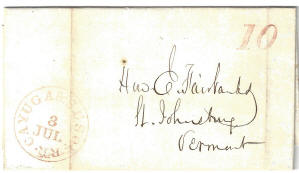 10
CAYUGA & SUSQ. R.R.
3
JUL
Hon E. Fairbanks
St. Johnsbury
Vermont